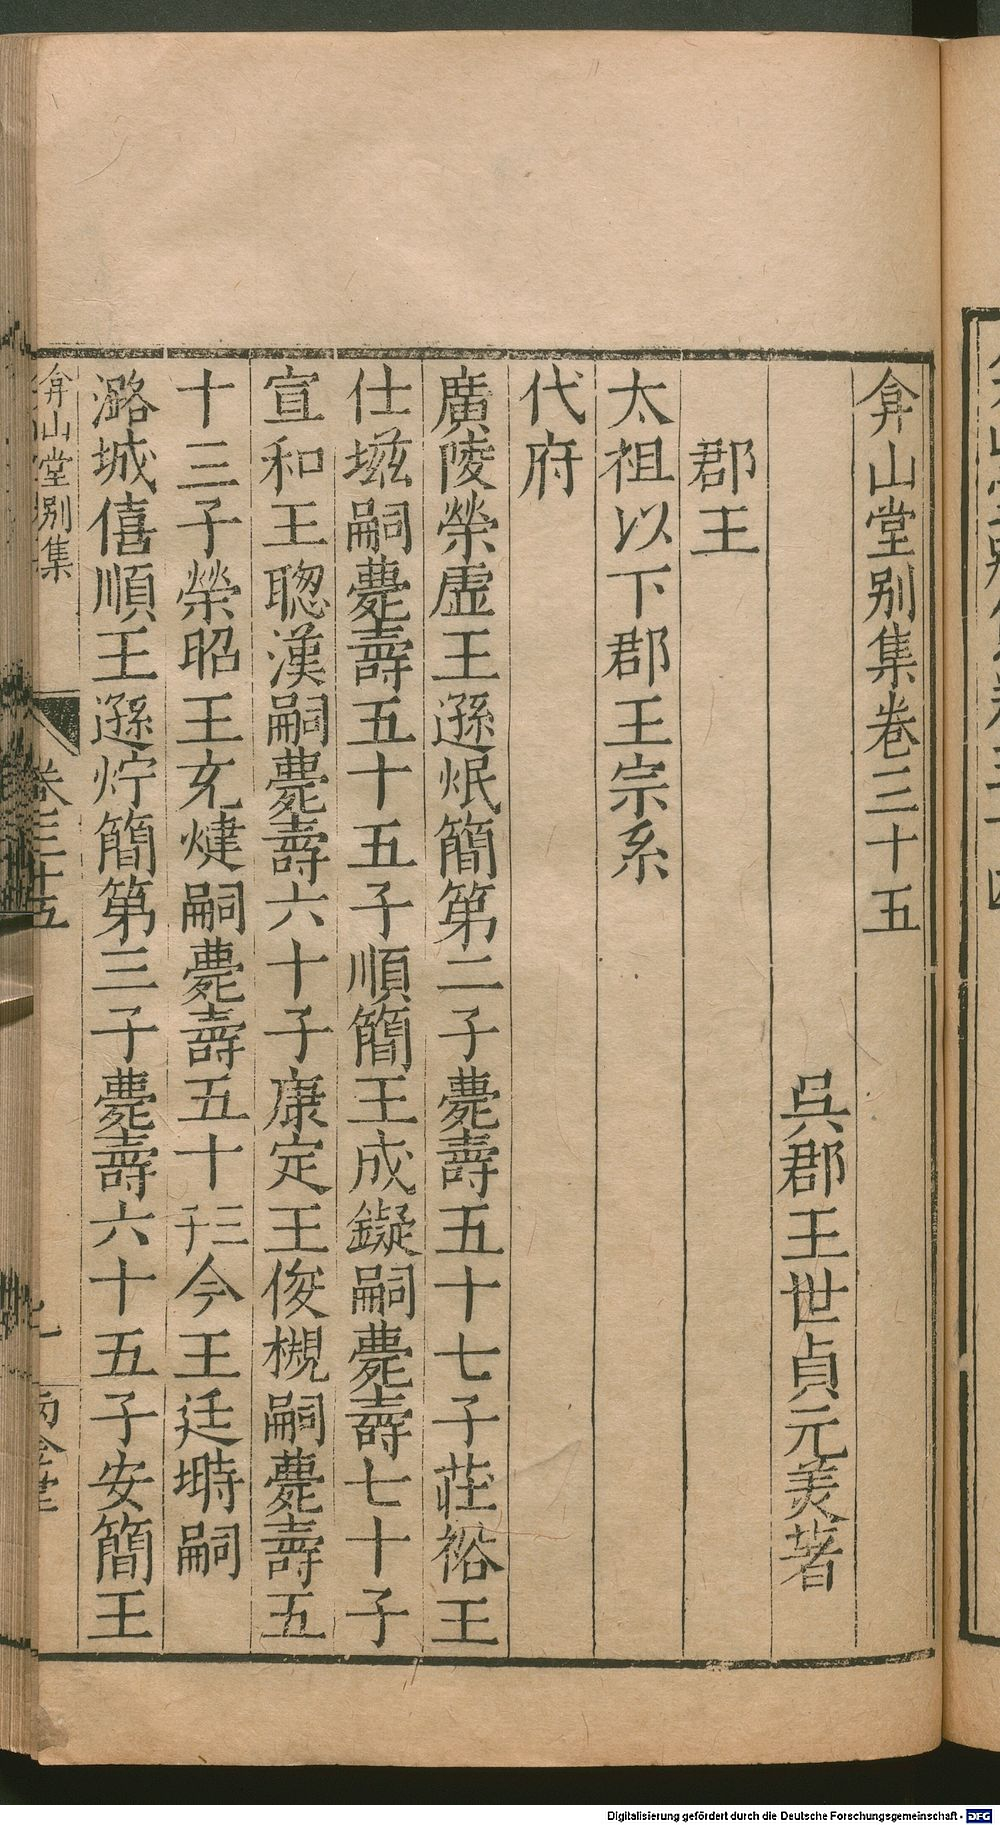 弇山堂别集卷三十五
吳郡王世貞元美著
郡王
太祖以下郡王宗系
代府
廣陵榮虛王遜炾簡第二子薨壽五十七子莊裕王
仕𡏖嗣薨壽五十五子順簡王成鑝嗣薨壽七十子
宣和王聰漢嗣薨壽六十子康定王俊槻嗣薨壽五
十三子榮昭王充煡嗣薨壽五十三子今王廷塒嗣
潞城僖順王遜㶆簡第三子薨壽六十五子安簡王
弇山堂别集
卷三十五
Digitalisierung gefördert durch die Deutsche Forschungsgemeinschaft - DFG